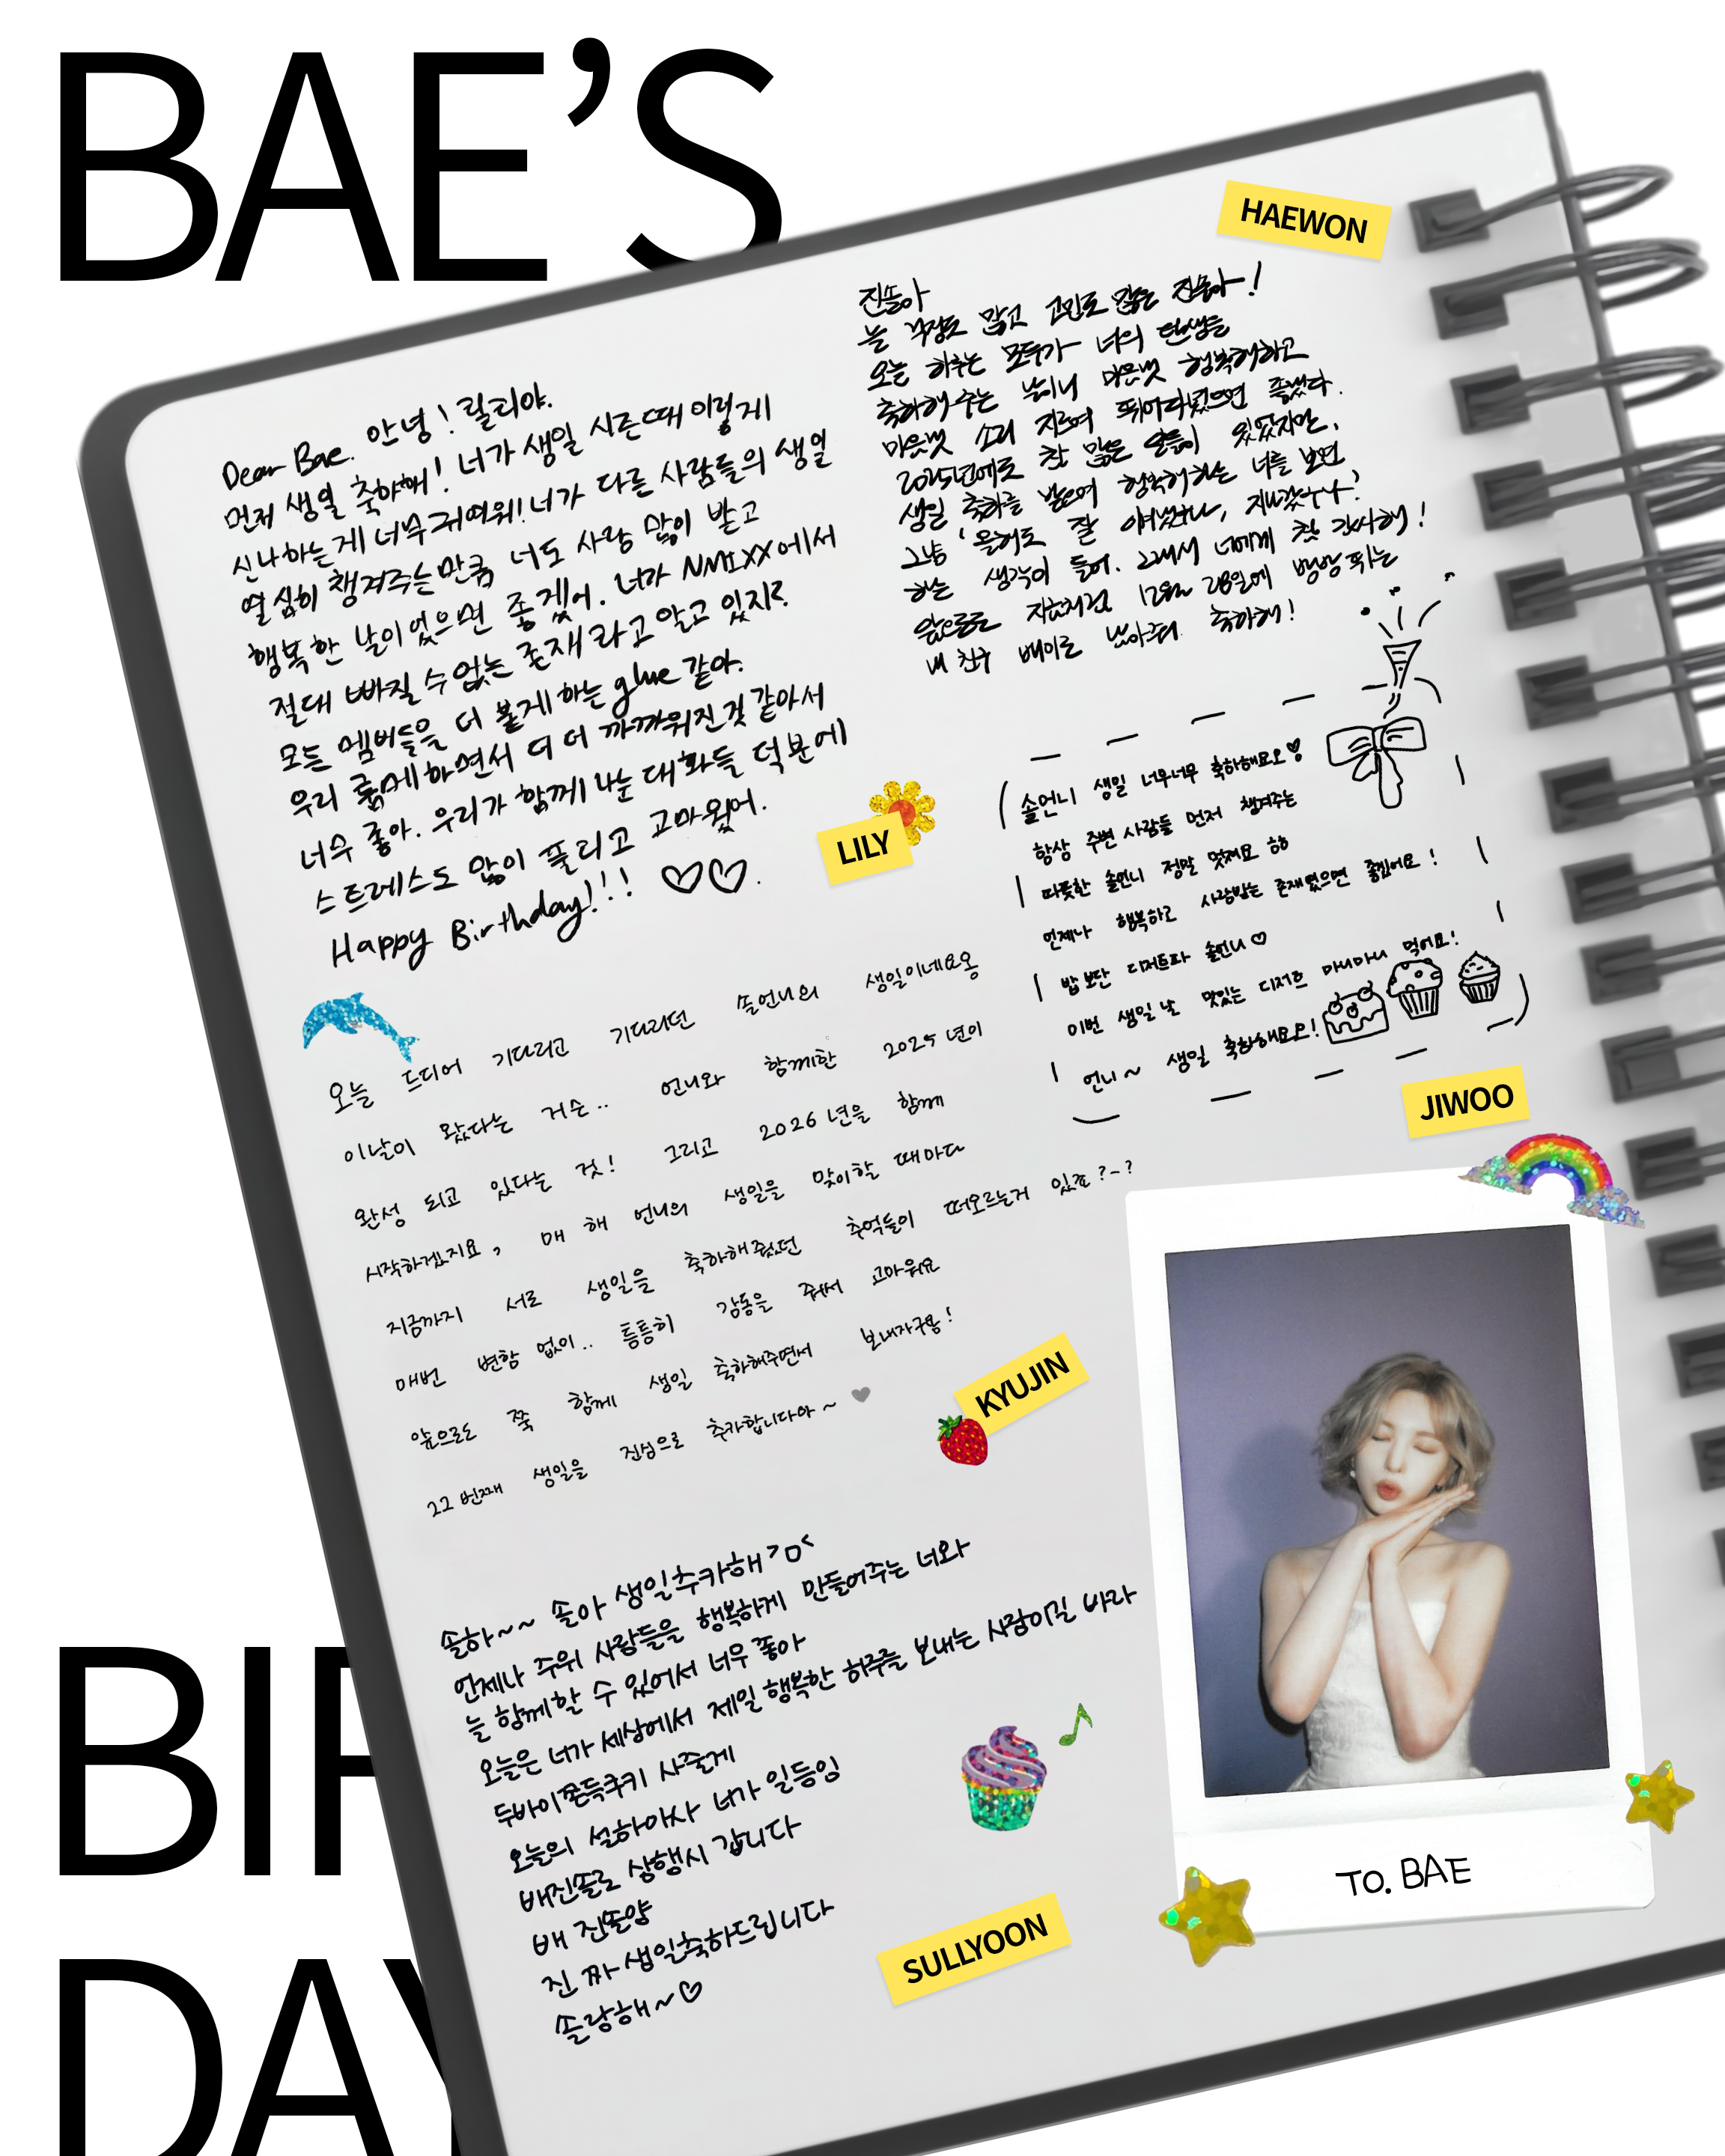 BAE'S
HAEWON
진솔아
늘 걱정도 많고 고민도 많은 진솔아~!
오늘 하루는 모두가 너의 탄생을
축하해주는 날이니 마음껏 행복해하고
마음껏 소리 지르며 뛰어다녔으면 좋겠다.
2025년에도 참 많은 일들이 있었지만,
생일 축하를 받으며 행복해하는 너를 보면
그냥 '올해도 잘 해냈구나, 지나갔구나'
하는 생각이 들어. 그래서 너에게 참 감사해!
앞으로도 지금처럼 12월 28일에 방방 뛰는
내 친구 배이로 남아줘. 축하해!
Dear Bae. 안녕! 릴리야.
먼저 생일 축하해! 너가 생일 시즌때 이렇게
신나하는게 너무 귀여워! 너가 다른 사람들의 생일
열심히 챙겨주는만큼 너도 사랑 많이 받고
행복한 날이었으면 좋겠어. 너가 NMIXX에서
절대 빠질 수 없는 존재라고 알고 있지?
모든 멤버들을 더 붙게 하는 glue 같아.
우리 룸메하면서 더 더 가까워진것 같아서
너무 좋아. 우리가 함께 나눈 대화들 덕분에
스트레스도 많이 풀리고 고마웠어.
Happy Birthday!!! ♡♡.
LILY
솔언니 생일 너무너무 축하해요오♡
항상 주변 사람들 먼저 챙겨주는
따뜻한 솔언니 정말 멋져요 하하
언제나 행복하고 사랑받는 존재였으면 좋겠어요!
밥보단 디저트파 솔언니♡
이번 생일날 맛있는 디저트 마니마니 먹어요!
언니~ 생일 축하해요오!
JIWOO
오늘 드디어 기다리고 기다리던 쏠언니의 생일이네요옹
이날이 왔다는 거슨.. 언니와 함께한 2025년이
완성 되고 있다는 것! 그리고 2026년을 함께
시작하겠지요, 매 해 언니의 생일을 맞이할 때마다
지금까지 서로 생일을 축하해줬던 추억들이 떠오르는거 있죠?-?
매번 변함 없이.. 틈틈히 감동을 줘써 고마워요
앞으로도 쭉 함께 생일 축하해주면서 보내자구용!
22번째 생일을 진심으로 추카합니다아~ ♥
KYUJIN
솔하~~ 솔아 생일추카해>ㅁ<
언제나 주위 사람들을 행복하게 만들어주는 너와
늘 함께할 수 있어서 너무 좋아
오늘은 너가 세상에서 제일 행복한 하루를 보내는 사람이길 바라
두바이쫀득쿠키 사줄게
오늘의 설하아사 너가 일등임
배진쏠로 삼행시 갑니다
배 진쏠양
진 짜 생일축하드립니다
솔랑해~♡
SULLYOON
TO. BAE
BIR
DAY